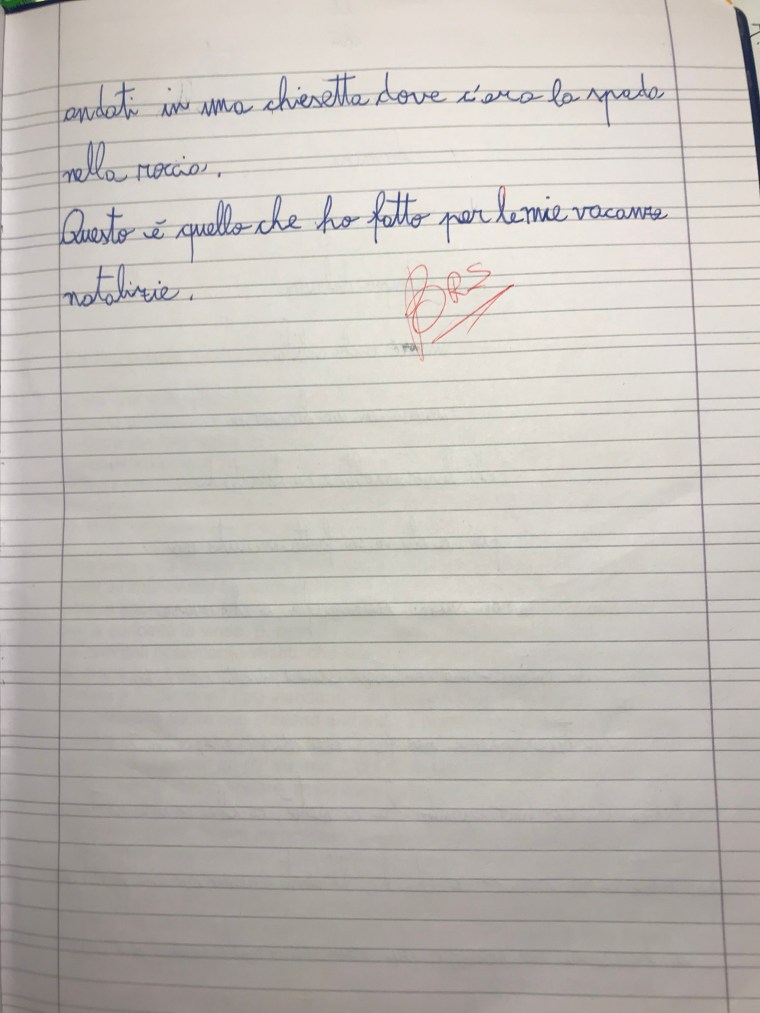 andati in una chiesetta dove c'era la spada
nella roccia.
Questo è quello che ho fatto per le mie vacanze
natalizie.
BRS